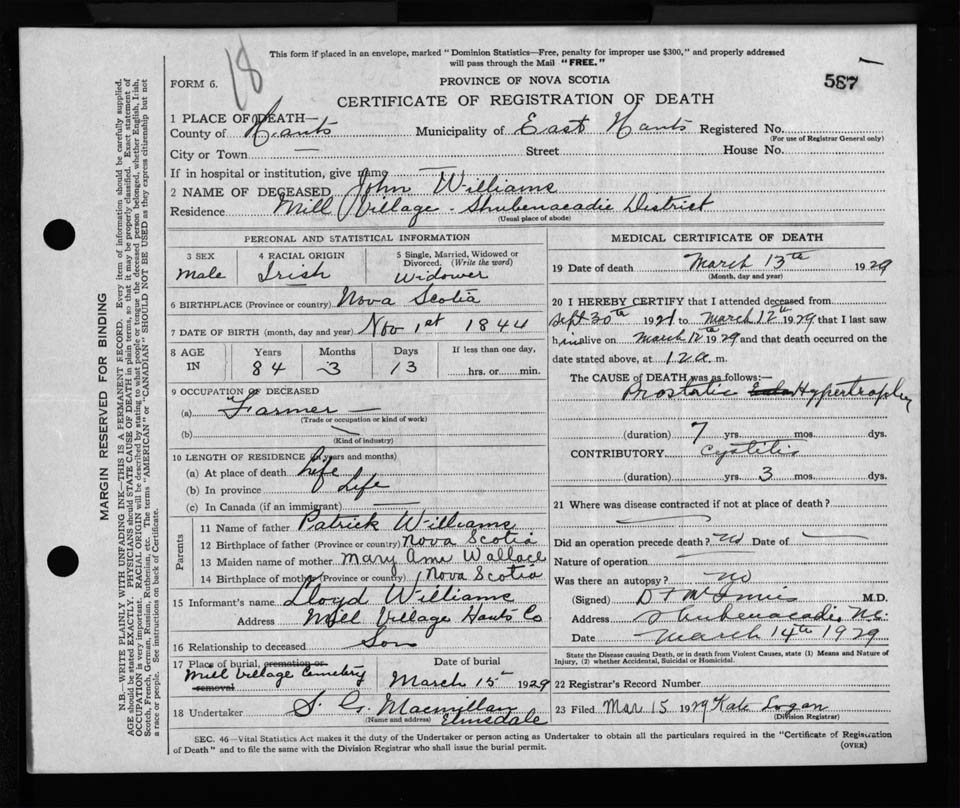 18
This form if placed in an envelope, marked "Dominion Statistics—Free, penalty for improper use $300," and properly addressed
will pass through the Mail "FREE."
FORM 6.
PROVINCE OF NOVA SCOTIA
587
CERTIFICATE OF REGISTRATION OF DEATH
1 PLACE OF DEATH—
County of Hants Municipality of East Hants Registered No.
(For use of Registrar General only)
City or Town — Street House No.
If in hospital or institution, give name
2 NAME OF DECEASED John Williams
Residence Mill Village - Shubenacadie District
(Usual place of abode)
PERSONAL AND STATISTICAL INFORMATION
3 SEX 4 RACIAL ORIGIN 5 Single, Married, Widowed or
Divorced. (Write the word)
Male Irish Widower
6 BIRTHPLACE (Province or country) Nova Scotia
7 DATE OF BIRTH (month, day and year) Nov 1st 1844
8 AGE IN Years Months Days If less than one day,
84 3 13 hrs. or min.
9 OCCUPATION OF DECEASED
(a) Farmer —
(Trade or occupation or kind of work)
(b)
(Kind of industry)
10 LENGTH OF RESIDENCE (in years and months)
(a) At place of death Life
(b) In province Life
(c) In Canada (if an immigrant) —
Parents
11 Name of father Patrick Williams
12 Birthplace of father (Province or country) Nova Scotia
13 Maiden name of mother Mary Ann Wallace
14 Birthplace of mother (Province or country) Nova Scotia
15 Informant's name Lloyd Williams
Address Mill Village Hants Co
16 Relationship to deceased Son
17 Place of burial, cremation or removal Date of burial
Mill Village Cemetery March 15th 1929
18 Undertaker S. G. Macmillan
(Name and address) Elmsdale
MEDICAL CERTIFICATE OF DEATH
19 Date of death March 13th 1929
(Month, day and year)
20 I HEREBY CERTIFY that I attended deceased from
Sept 30th 1921 to March 12th 1929 that I last saw
him alive on March 12th 1929 and that death occurred on the
date stated above, at 12 a. m.
The CAUSE of DEATH was as follows:—
Prostatic Hypertrophy
(duration) 7 yrs. mos. dys.
CONTRIBUTORY Cystitis
(duration) yrs. 3 mos. dys.
21 Where was disease contracted if not at place of death?
Did an operation precede death? No Date of —
Nature of operation
Was there an autopsy? no
(Signed) D F McInnis M.D.
Address Shubenacadie, N.S.
Date March 14th 1929
State the Disease causing Death, or in death from Violent Causes, state (1) Means and Nature of
Injury, (2) whether Accidental, Suicidal or Homicidal.
22 Registrar's Record Number
23 Filed Mar 15 1929 Kate Logan
(Division Registrar)
SEC. 46—Vital Statistics Act makes it the duty of the Undertaker or person acting as Undertaker to obtain all the particulars required in the "Certificate of Registration
of Death" and to file the same with the Division Registrar who shall issue the burial permit.
(OVER)
MARGIN RESERVED FOR BINDING
N.B.—WRITE PLAINLY WITH UNFADING INK—THIS IS A PERMANENT RECORD. Every item of information should be carefully supplied.
AGE should be stated EXACTLY. PHYSICIANS should STATE CAUSE OF DEATH in plain terms, so that it may be properly classified. Exact statement of
OCCUPATION is very important. RACIAL ORIGIN will be described by stating to what people or tongue the deceased person belonged, whether English, Irish,
Scotch, French, German, Russian, Ruthenian, etc. The terms "AMERICAN" or "CANADIAN" SHOULD NOT BE USED as they express citizenship but not
a race or people. See instructions on back of Certificate.